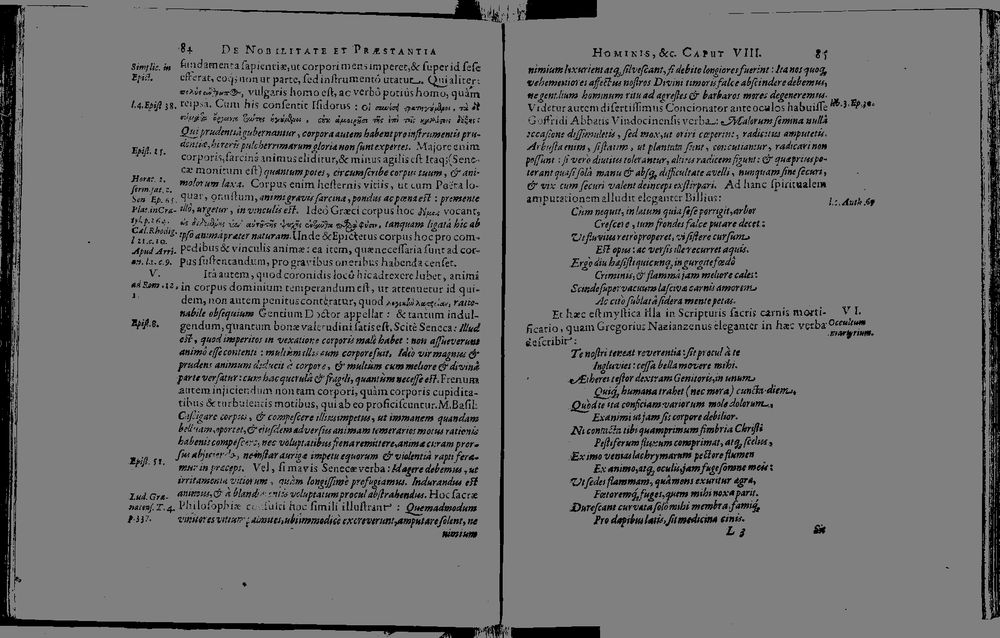 84 DE NOBILITATE ET PRÆSTANTIA
Simplic. in
Epict.
fundamenta sapientiæ, ut corpori mens imperet, & super id sese
efferat, eoq; non ut parte, sed instrumentô utatur. Qui aliter:
vulgaris homo est, ac verbô potiùs homo, quàm
l. 4. Epist. 38.
reipsâ. Cum his consentit Isidorus:
Qui prudentiâ gubernantur, corpora autem habent pro instrumentis pru-
dentiæ, hi rerû pulcherrimarum gloria non sunt expertes. Majore enim
Epist. 15.
corporis, sarcinâ animus eliditur, & minus agilis est Itaq; (Sene-
cæ monitum est) quantum potes, circumscribe corpus tuum, & ani-
Horat. 2.
serm. sat. 2.
Sen Ep. 65.
Plat. in Cra-
tyl. p. 264.
Cal. Rhodig.
l 21. c 10.
Apud Arri-
an. l. 1. c. 9.
molorum laxa. Corpus enim hesternis vitiis, ut cum Poëta lo-
quar, onustum, animi gravis sarcina, pondus ac pœna est: premente
illô, urgetur, in vinculis est. Ideò Græci corpus hoc vocant,
tanquam ligatâ hic ab
ipsô animâ præter naturam. Unde & Epictetus corpus hoc pro com-
pedibus & vinculis animæ: ea item, quæ necessaria sunt ad cor-
pus sustentandum, pro gravibus oneribus habenda censet.
V.
Ita autem, quod coronidis locô hic adtexere lubet, animi
ad Rom. 12.
1.
in corpus dominium temperandum est, ut attenuetur id qui-
dem, non autem penitus conteratur, quod ratio-
nabile obsequium Gentium Doctor appellat: & tantum indul-
Epist. 8.
gendum, quantum bonæ valetudini satis est. Scitè Seneca: Illud
est, quod imperitos in vexatione corporis malè habet: non assueverunt
animô esse contenti: multùm illis cum corpore fuit. Ideò vir magnus &
prudens animum deducit à corpore, & multùm cum meliore & divinâ
parte versatur: cum hac querulâ & fragili, quantùm necesse est. Frenum
autem injiciendum non tam corpori, quàm corporis cupidita-
tibus & turbulentis motibus, qui ab eo proficiscuntur. M. Basil:
Castigare corpus, & compescere illius impetus, ut immanem quandam
belluam, oportet, & ejusdem adversus animam temerarios motus rationis
habenis compescere, nec voluptatibus frena remittere, anima curam pror-
sus abjicere, ne instar aurigæ impetu equorum & violentiâ rapti fera-
Epist. 51.
mur in præceps. Vel, si mavis Senecæ verba: Idagere debemus, ut
irritamenta vitiorum, quàm longissimè profugiamus. Indurandus est
Lud. Gra-
natens. T. 4.
p. 337.
animus, & à blandimentis voluptatum procul abstrahendus. Hoc sacræ
Philosophiæ consulti hoc simili illustrant: Quemadmodum
vinitores vitium palmites, ubi immodicè excreverunt, amputare solent, ne
nimium
HOMINIS, &c. CAPUT VIII. 85
nimium luxurient atq; silvescant, si debito longiores fuerint: Ita nos quoq;
vehementiores affectus nostros Divini timoris falce abscindere debemus,
ne gentilium hominum ritu ad agrestes & barbaros mores degeneremus.
Videtur autem disertissimus Concionator ante oculos habuisse
lib. 3. Ep. 30.
Goffridi Abbatis Vindocinensis verba: Malorum semina nullâ
occasione dissimuletis, sed mox, ut oriri cœperint, radicitus amputetis.
Arbusta enim, si statim, ut plantata sunt, concutiantur, radicari non
possunt: si verò diutius tolerantur, altius radicem figunt: & quæ prius po-
terant quasi solâ manu & absq; difficultate avelli, nunquam sine securi,
& vix cum securi valent deinceps exstirpari. Ad hanc spiritualem
l. 2. Anth. 69
amputationem alludit eleganter Billius:
Cùm nequit, in latum quia sese porrigit, arbor
Crescere, tum frondes falce putare decet:
Ut fluvius retrò properet, vi sistere cursum
Est opus: ac versis ille recurret aquis.
Ergò diu hæsisti quicunq; in gurgite fœdô
Criminis, & flammâ jam meliore cales:
Scinde supervacuum lasciva carnis amorem
Ac citò sublatâ sidera mente petas.
VI.
Et hæc est mystica illa in Scripturis sacris carnis morti-
Occultum
martyrium.
ficatio, quam Gregorius Nazianzenus eleganter in hæc verba
describit:
Te nostri teneat reverentia: sit procul à te
Ingluvies: cessa bella movere mihi.
Ætheris testor dextram Genitoris, in unum
Quiq; humana trahet (nec mora) cuncta diem,
Quòd te ita conficiam variorum mole dolorum,
Exanimi ut jam sis corpore debilior.
Ni contacta tibi quamprimum fimbria Christi
Pestiferum fluxum comprimat, atq; scelus,
Eximo venias lachrymarum pectore flumen
Ex animo, atq; oculis jam fuge somne meis:
Ut sedes flammam, quâ mens exuritur ægra,
Fœtoremq; fuget, quem mihi noxa parit.
Durescant curvata solô mihi membra: famiq;
Pro dapibus latis, sit medicina cinis.
L 3 Sic